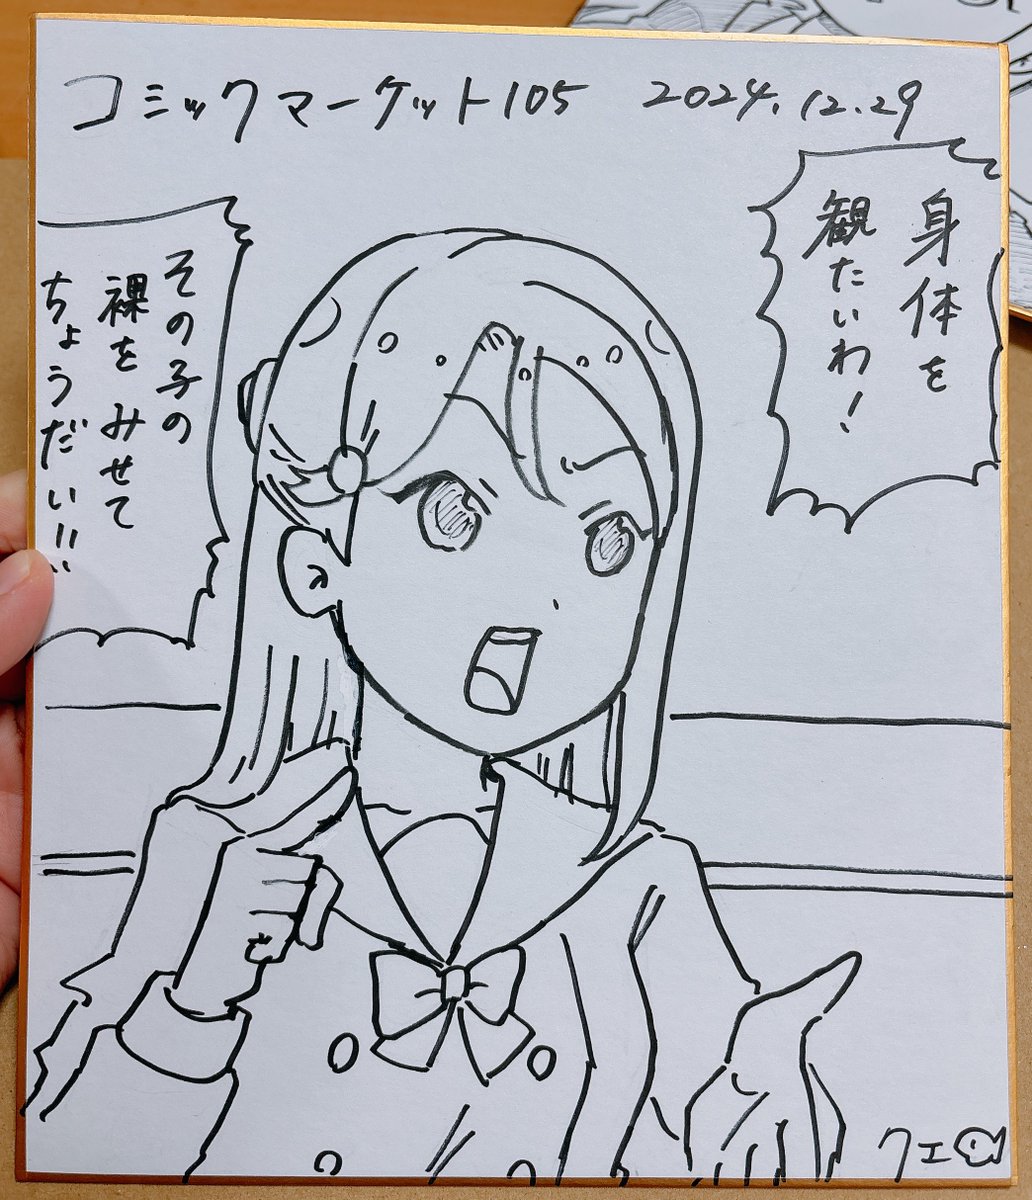 コミックマーケット105 2024.12.29
身体を
観たいわ!
その子の
裸をみせて
ちょうだい!!!
クエ